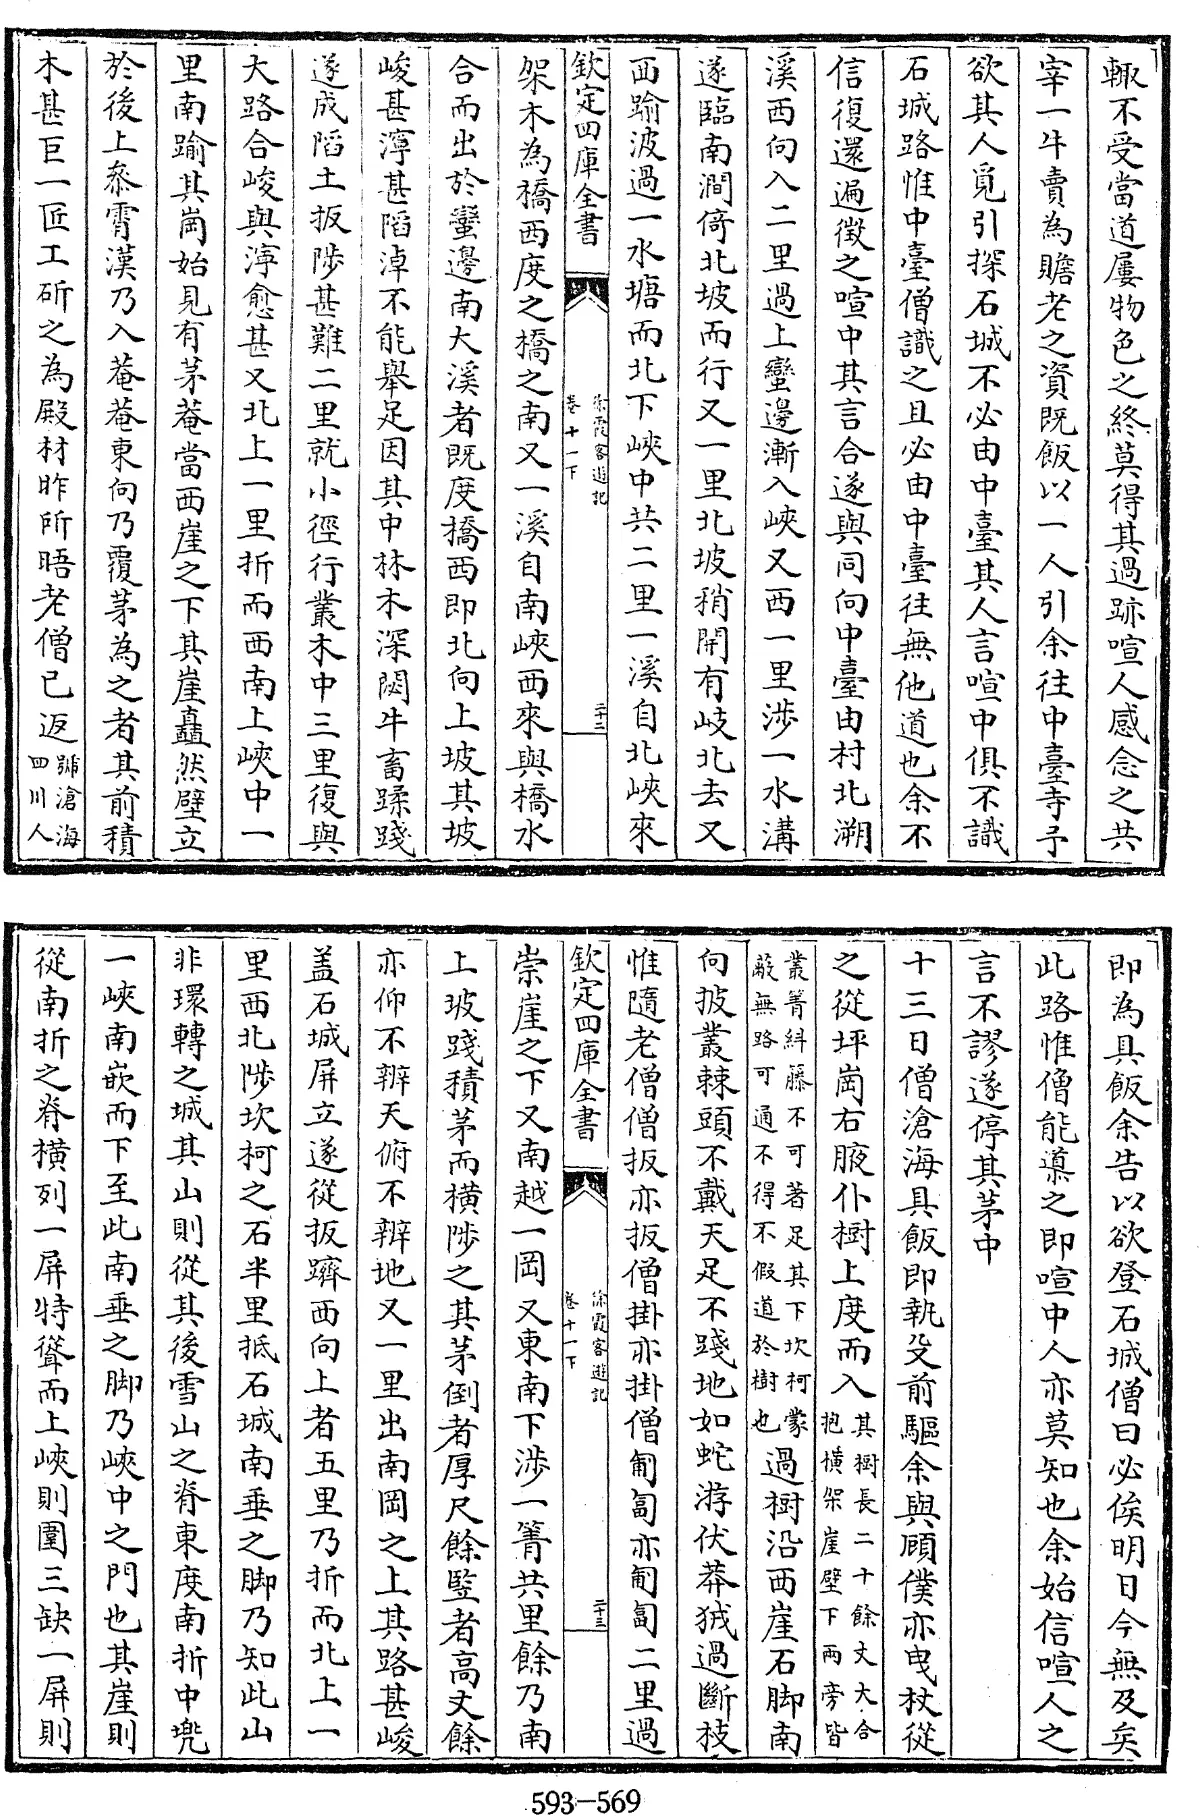 輙不受當道屢物色之終莫得其過跡喧人感念之共
宰一牛賣為贍老之資既飯以一人引余往中臺寺予
欲其人覓引探石城不必由中臺其人言喧中俱不識
石城路惟中臺僧識之且必由中臺往無他道也余不
信復還遍徴之喧中其言合遂與同向中臺由村北溯
溪西向入二里過上蠻邊漸入峽又西一里渉一水溝
遂臨南澗倚北坡而行又一里北坡稍開有岐北去又
西踰波過一水塘而北下峽中共二里一溪自北峽來
欽定四庫全書
徐霞客遊記
卷十一下
二十二
架木為橋西度之橋之南又一溪自南峽西來與橋水
合而出於蠻邊南大溪者既度橋西即北向上坡其坡
峻甚濘甚陷淖不能舉足因其中林木深閟牛畜蹂踐
遂成陷土扳陟甚難二里就小徑行叢木中三里復與
大路合峻與濘愈甚又北上一里折而西南上峽中一
里南踰其崗始見有茅菴當西崖之下其崖矗然壁立
於後上叅霄漢乃入菴菴東向乃覆茅為之者其前積
木甚巨一匠工斫之為殿材昨所晤老僧已返號滄海
四川人
即為具飯余告以欲登石城僧曰必俟明日今無及矣
此路惟僧能導之即喧中人亦莫知也余始信喧人之
言不謬遂停其茅中
十三日僧滄海具飯即執殳前驅余與顧僕亦曳杖從
之從坪崗右腋仆樹上度而入其樹長二十餘丈大合
抱橫架崖壁下兩旁皆
叢箐糾藤不可著足其下坎柯蒙
蔽無路可通不得不假道於樹也過樹沿西崖石脚南
向披叢棘頭不戴天足不踐地如蛇游伏莽狨過斷枝
惟隨老僧僧扳亦扳僧掛亦掛僧匍匐亦匍匐二里過
欽定四庫全書
徐霞客遊記
卷十一下
二十三
崇崖之下又南越一岡又東南下渉一箐共里餘乃南
上坡踐積茅而橫陟之其茅倒者厚尺餘竪者高丈餘
亦仰不辨天俯不辨地又一里出南岡之上其路甚峻
盖石城屏立遂從扳躋西向上者五里乃折而北上一
里西北陟坎柯之石半里抵石城南垂之脚乃知此山
非環轉之城其山則從其後雪山之脊東度南折中兠
一峽南嵌而下至此南垂之脚乃峽中之門也其崖則
從南折之脊橫列一屏特聳而上峽則圍三缺一屏則
593-569